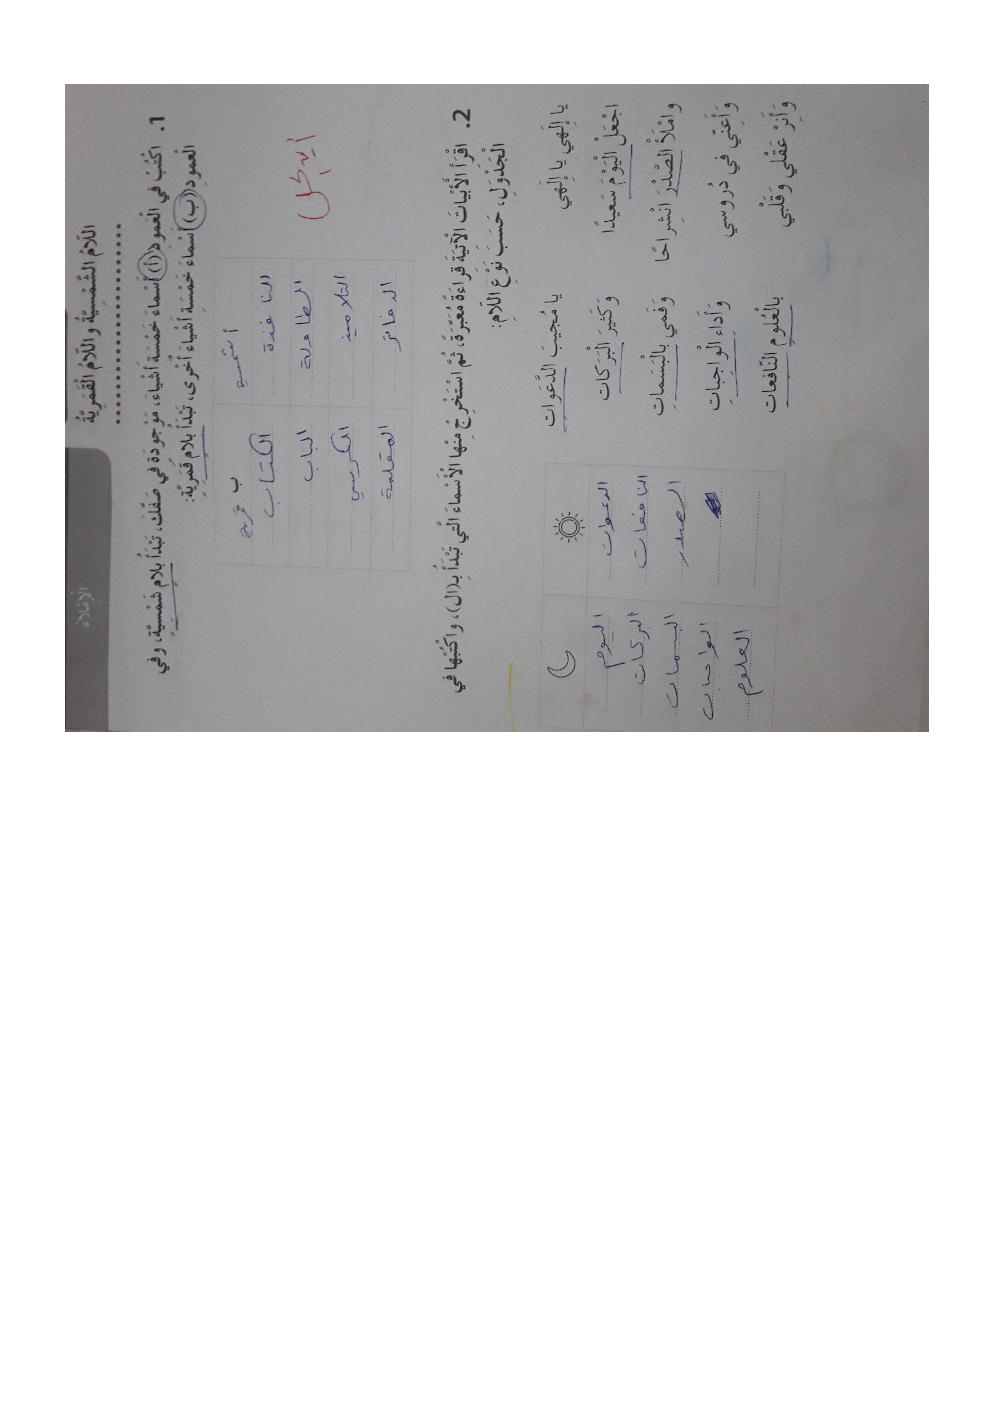 الإملاء
اللّامُ الشَّمْسِيَّةُ و اللّامُ القَمَرِيَّةُ
1. اكْتُبْ في العَمودِ (أ) أَسْماءَ خَمْسَةِ أَشْياءَ، مَوْجودَةٍ في صَفِّكَ، تَبْدَأُ بِلامٍ شَمْسِيَّةٍ، وفي
الْعَمودِ (ب) أَسْماءَ خَمْسَةِ أَشْياءَ أُخْرى، تَبْدَأُ بِلامٍ قَمَرِيَّةٍ:
أ ب
النافذة الكتاب
الطاولة الباب
التلاميذ الكرسي
الدفاتر المقلمة
2. اقْرَأِ الْأَبْياتَ الْآتِيَةَ قِراءَةً مُعَبِّرَةً، ثُمَّ اسْتَخْرِجْ مِنْها الْأَسْماءَ الَّتي تَبْدَأُ بِـ(ال)، واكْتُبْها في
الْجَدْوَلِ، حَسَبَ نَوْعِ اللّامِ:
يا إِلَهي يا إِلَهي يا مُجيبَ الدَّعَوات
اجْعَلْ الْيَوْمَ سَعيدًا وَكَثيرَ الْبَرَكات
وامْلَأْ الصَّدْرَ انْشِراحًا وَفَمي بِالْبَسَماتِ
وَأَعِنّي في دُروسي وَأَداءِ الْواجِباتِ
وَأَنِرْ عَقْلي وَقَلْبي بِالْعُلومِ النّافِعات
الدعوات اليوم
النافعات البركات
الصدر البسمات
الواجبات
العلوم